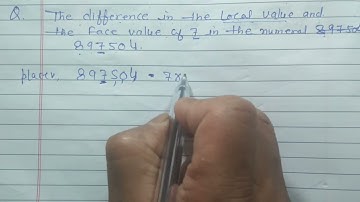 Q. The difference in the Local value and
the face value of 7 in the numeral 897504
897504.
placev. 897504 = 7x